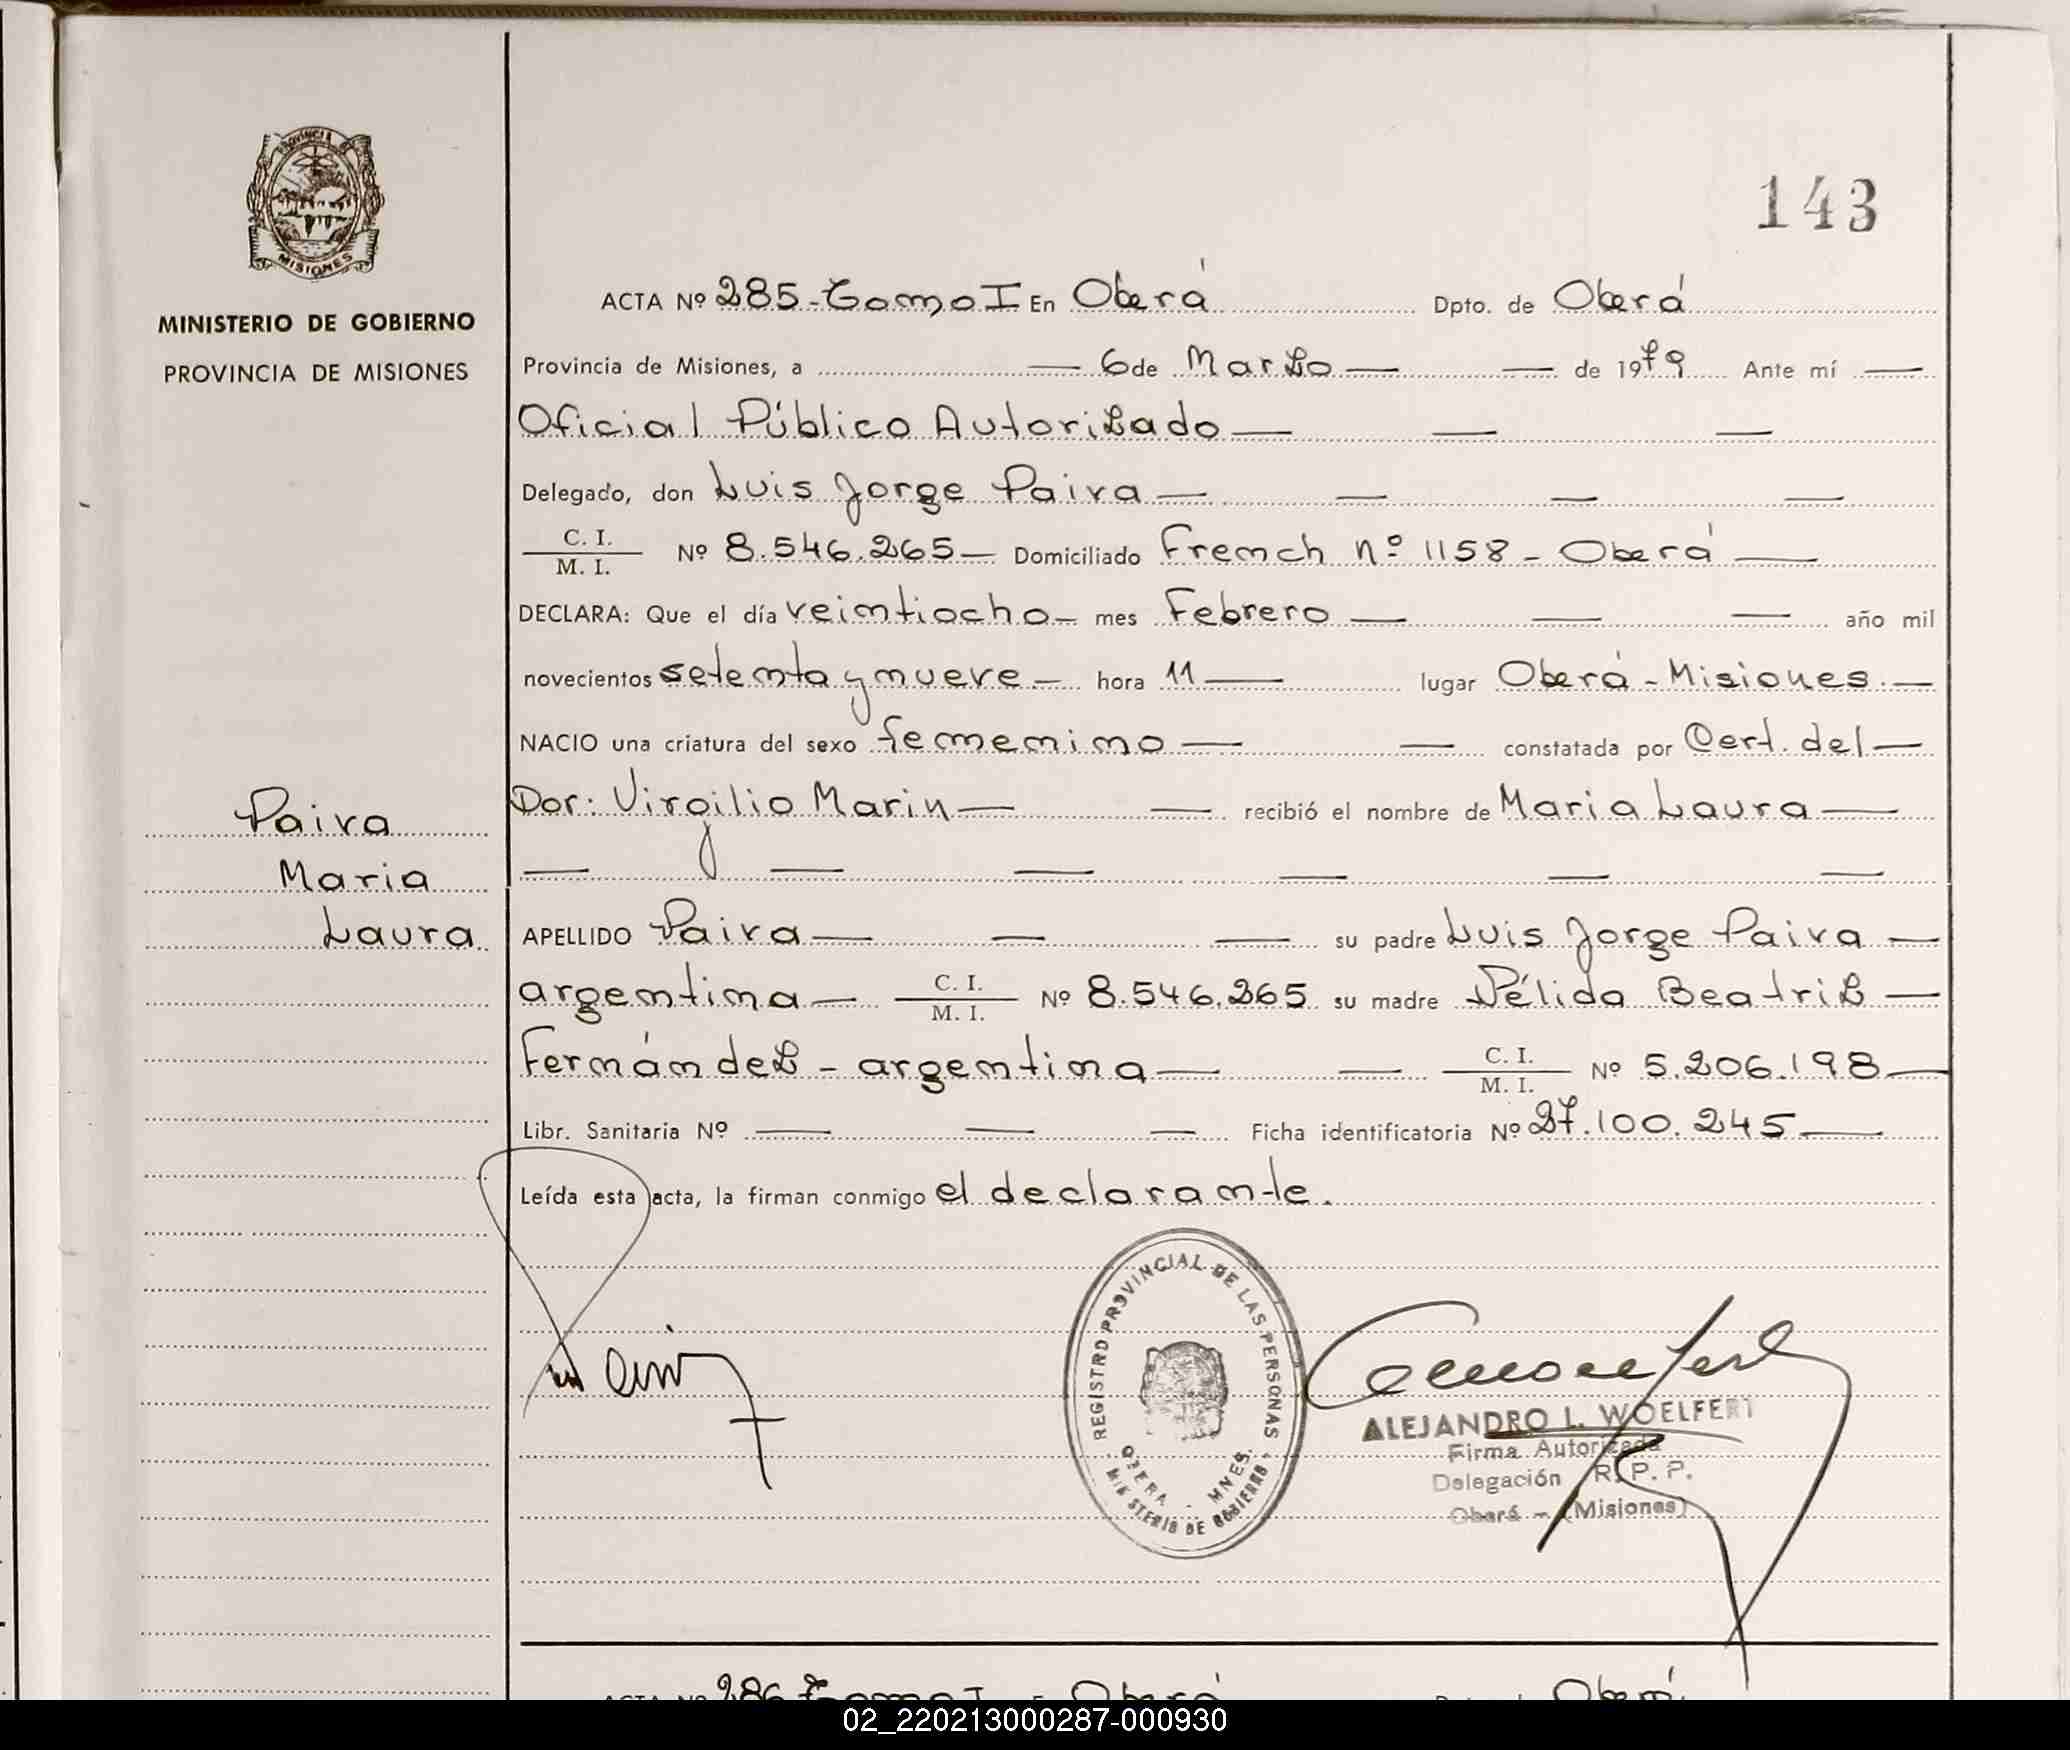 PROVINCIA DE
MISIONES
MINISTERIO DE GOBIERNO
PROVINCIA DE MISIONES
Paiva
Maria
Laura
143
ACTA Nº 285-Tomo I En Oberá Dpto. de Oberá
Provincia de Misiones, a — 6 de Marzo — — de 1979 Ante mí —
Oficial Público Autorizado — — —
Delegado, don Luis Jorge Paiva — — — —
C. I.
M. I. Nº 8.546.265 — Domiciliado French nº 1158 - Oberá —
DECLARA: Que el día veintiocho — mes Febrero — — — año mil
novecientos setenta y nueve — hora 11 — lugar Oberá - Misiones —
NACIO una criatura del sexo femenino — — constatada por Cert. del —
Dor: Virgilio Marin — — recibió el nombre de Maria Laura —
— — — — — —
APELLIDO Paiva — — — su padre Luis Jorge Paiva —
argentina — C. I.
M. I. Nº 8.546.265 su madre Nélida Beatriz —
Fernández - argentina — — C. I.
M. I. Nº 5.206.198 —
Libr. Sanitaria Nº — — — Ficha identificatoria Nº 27.100.245 —
Leída esta acta, la firman conmigo el declarante.
REGISTRO PROVINCIAL DE LAS PERSONAS
OBERA - MNES.
MINISTERIO DE GOBIERNO
ALEJANDRO L. WOELFERT
Firma Autorizada
Delegación R. P. P.
Oberá - (Misiones)
ACTA Nº 286 Tomo I En Oberá Oberá
02_220213000287-000930